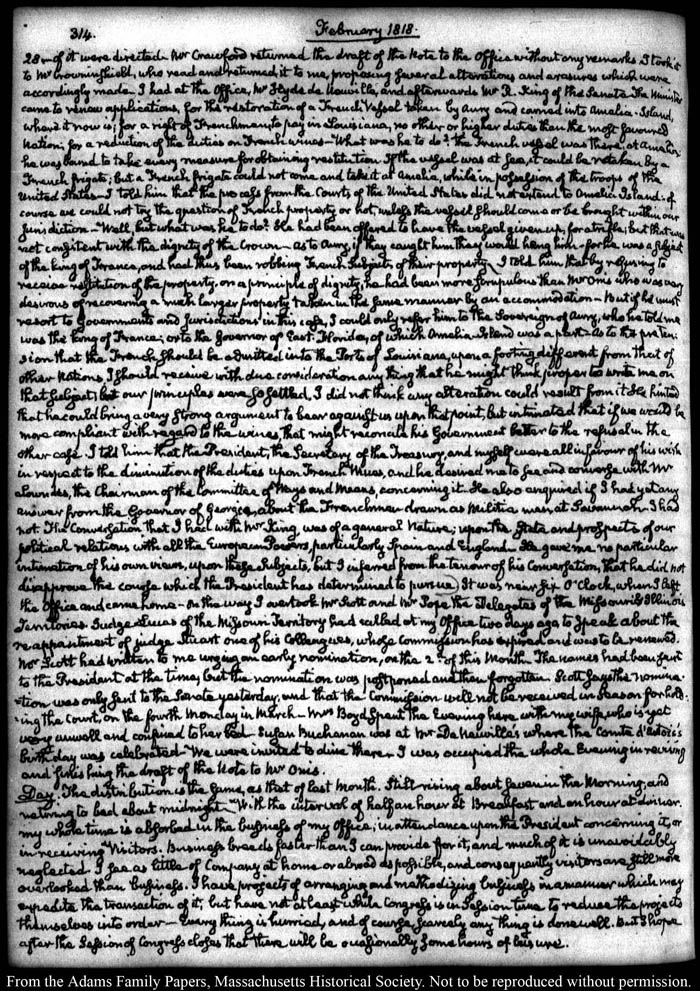 314.
February 1818.
28. of it were directed. Mr Crawford returned the draft of the Note to the Office without any remarks. I took it
to Mr Crowninshield, who read and returned it to me, proposing several alterations and erasures which were
accordingly made. I had at the Office, Mr Hyde de Neuville, and afterwards Mr R. King of the Senate. The Minister
came to renew applications, for the restoration of a French Vessel taken by Aury and carried into Amelia-Island,
where it now is; for a right of Frenchmen to pay in Louisiana, no other or higher duties than the most favoured
Nation; for a reduction of the duties on French wines—What was he to do? the French vessel was there, at Amelia
he was bound to take every measure for obtaining restitution. If the vessel was at sea, it could be retaken by a
French frigate; but a French frigate could not come and take it at Amelia, while in possession of the troops of the
United States—I told him that the process from the Courts of the United States did not extend to Amelia Island. of
course we could not try the question of French property or not, unless the vessel should come or be brought within our
Jurisdiction—Well, but what was he to do? He had been offered to have the vessel given up, for a trifle; but that was
not consistent with the dignity of the Crown—as to Aury, if they caught him they would hang him—for he was a subject
of the king of France, and had thus been robbing French Subjects of their property. I told him that by refusing to
receive restitution of the property, on a principle of dignity, he had been more scrupulous than Mr Onis who was very
desirous of recovering a much larger property taken in the same manner by an accommodation—But if he must
resort to Governments and Jurisdictions in this case, I could only refer him to the Sovereign of Aury, who he told me
was the king of France; or to the Governor of East-Florida, of which Amelia-Island was a part—As to the preten-
sion that the French should be admitted into the Ports of Louisiana, upon a footing different from that of
other Nations, I should receive with due consideration any thing that he might think proper to write me on
that subject; but our principles were so settled, I did not think any alteration could result from it. He hinted
that he could bring a very strong argument to bear against us upon that point, but intimated that if we would be
more compliant with regard to the wines, that might reconcile his Government better to the refusal in the
other case. I told him that the President, the Secretary of the Treasury, and myself were all in favour of his wish
in respect to the diminution of the duties upon French Wines, and he desired me to see and converse with Mr
Lowndes, the Chairman of the Committee of Ways and Means, concerning it. He also enquired if I had yet any
answer from the Governor of Georgia, about the Frenchmen drawn as Militia men, at Savannah. I had
not. The Conversation that I had with Mr King, was of a general Nature; upon the State and prospects of our
political relations with all the European Powers, particularly Spain and England—He gave me no particular
intimation of his own views, upon these Subjects, but I inferred from the tenour of his Conversation, that he did not
disapprove the course which the President has determined to pursue. It was near Six O'Clock, when I left
the Office and came home—On the way I overtook Mr Scott and Mr Pope the Delegates of the Missouri & Illinois
Territories. Judge Lucas of the Missouri Territory had called at my Office two days ago to speak about the
reappointment of judge Stuart one of his Colleagues, whose Commission has expired and was to be renewed.
Mr Scott had written to me urging an early nomination, on the 2d of this Month. The names had been sent
to the President at the time, but the nomination was postponed and then forgotten. Scott says the nomina-
tion was only sent to the Senate yesterday, and that the Commission will not be received in season for hold-
ing the Court, on the fourth Monday in March—Mrs Boyd spent the Evening here with my wife, who is yet
very unwell and confined to her bed. Susan Buchanan was at Mr De Neuville's where the Comte d'Artois's
birth day was celebrated—We were invited to dine there—I was occupied the whole Evening in revising
and finishing the draft of the Note to Mr Onis.
Day. The distribution is the same, as that of last Month. Still rising about seven in the Morning, and
retiring to bed about midnight—With the interval of half an hour at Breakfast and an hour at dinner.
my whole time is absorbed in the business of my Office; in attendance upon the President concerning it, or
in receiving Visitors. Business breeds faster than I can provide for it, and much of it is unavoidably
neglected. I see as little of Company at home or abroad as possible, and consequently visitors are still more
overlooked than business. I have projects of arranging and methodizing business in a manner which may
expedite the transaction of it, but have not at least while Congress is in Session time to reduce the projects
themselves into order—Every thing is hurried, and of course scarcely any thing is done well. But I hope
after the Session of Congress closes that there will be occasionally some hours of leisure.
From the Adams Family Papers, Massachusetts Historical Society. Not to be reproduced without permission.